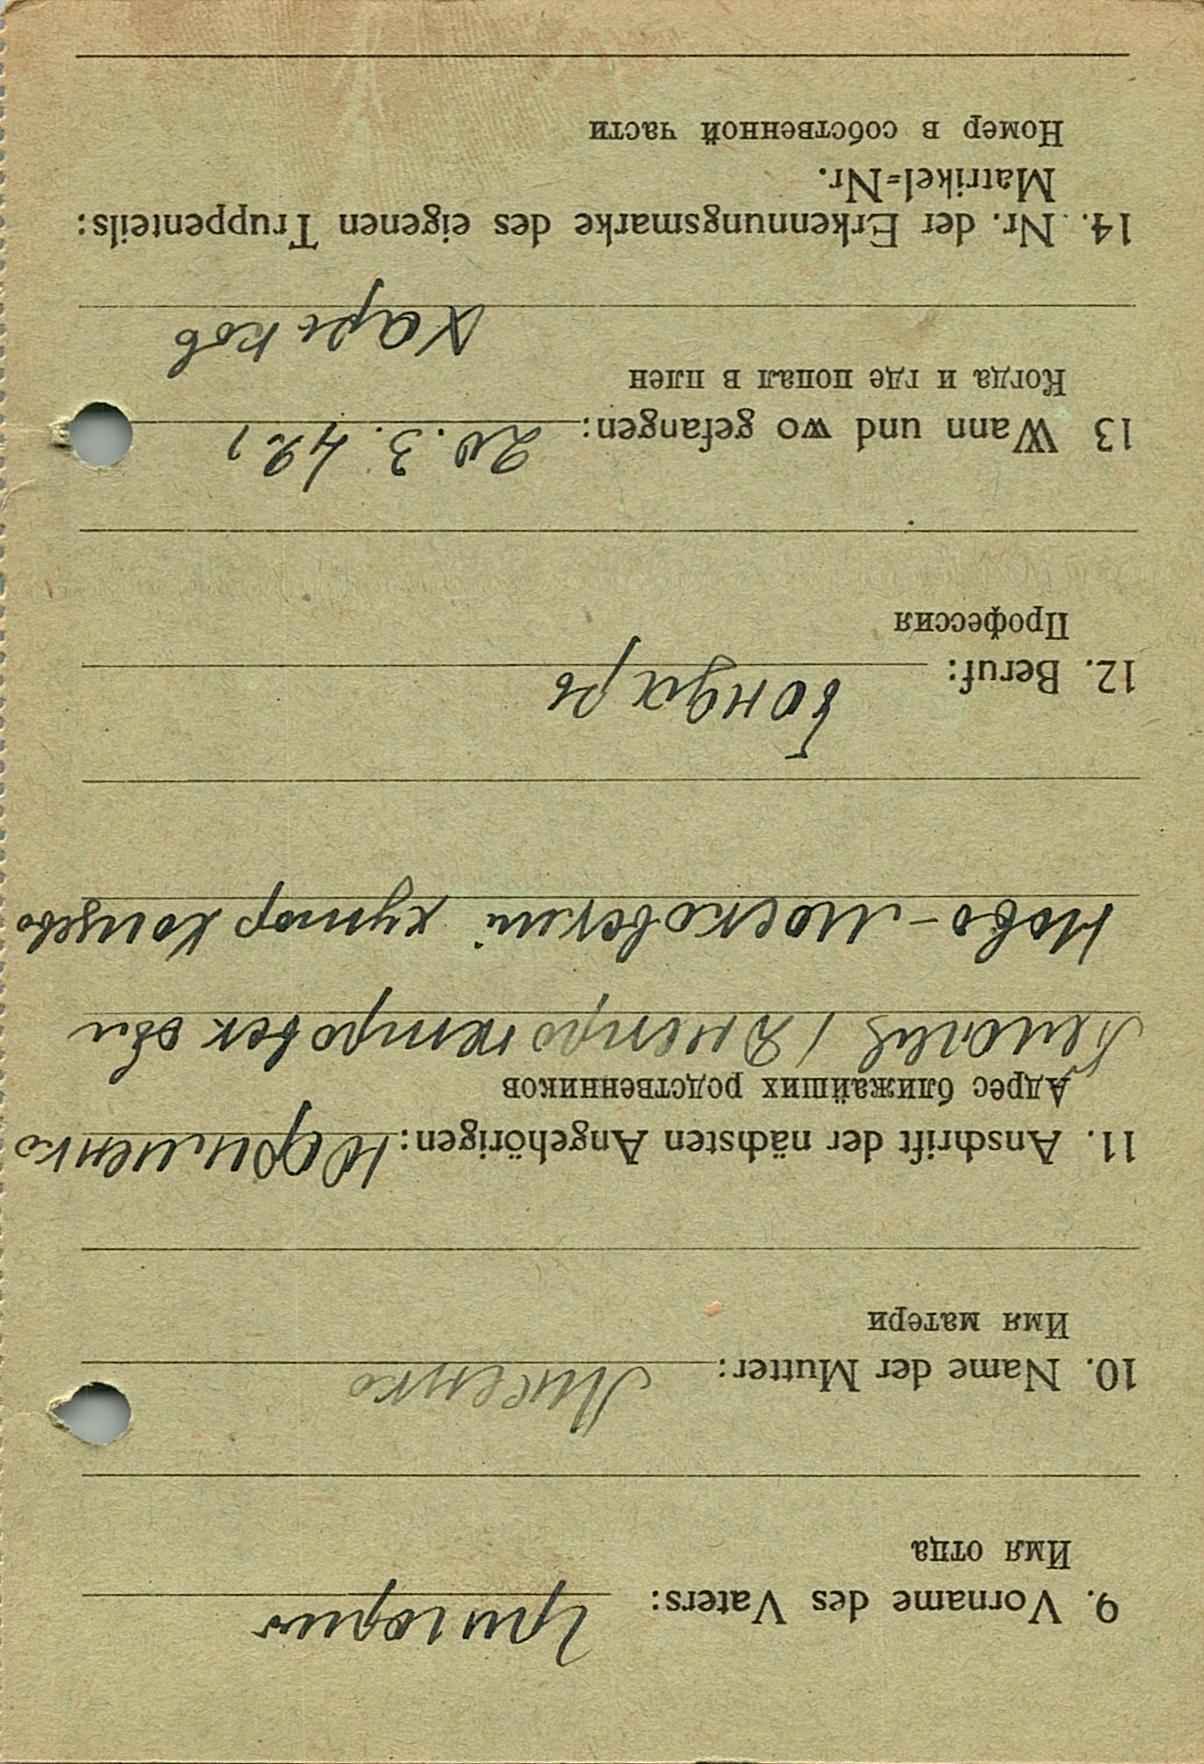 9. Vorname des Vaters: Григорий
Имя отца
10. Name der Mutter: Лисенко
Имя матери
11. Anschrift der nächsten Angehörigen:
Адрес ближайших родственников
Днепропетровск обл
Ново-Московский хутор
12. Beruf: бондарь
Профессия
13 Wann und wo gefangen: 20. 3. 42.,
Когда и где попал в плен
Харьков
14. Nr. der Erkennungsmarke des eigenen Truppenteils:
Matrikel=Nr.
Номер в собственной части